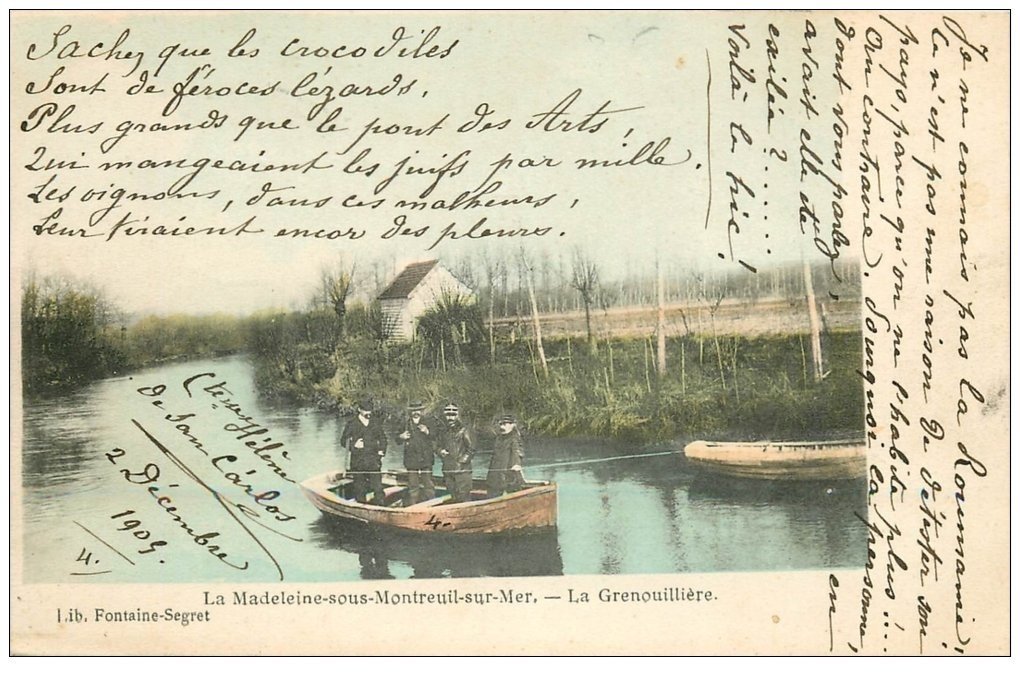 Sachez que les crocodiles
Sont de féroces lézards,
Plus grands que le pont des Arts,
Qui mangeaient les juifs par mille.
Les oignons, dans ces malheurs,
Leur tiraient encor des pleurs.
Je ne connais pas la Roumanie;
Ce n'est pas une raison de détester son
pays, parce qu'on ne l'habite plus!...
Au contraire. Pourquoi la personne,
dont vous parlez, en
avait elle été
exilée?......
Voilà le hic!
Ctesse Hélène
de San Carlos
2 Décembre
1905.
4.
4.
La Madeleine-sous-Montreuil-sur-Mer. — La Grenouillière.
Lib. Fontaine-Segret